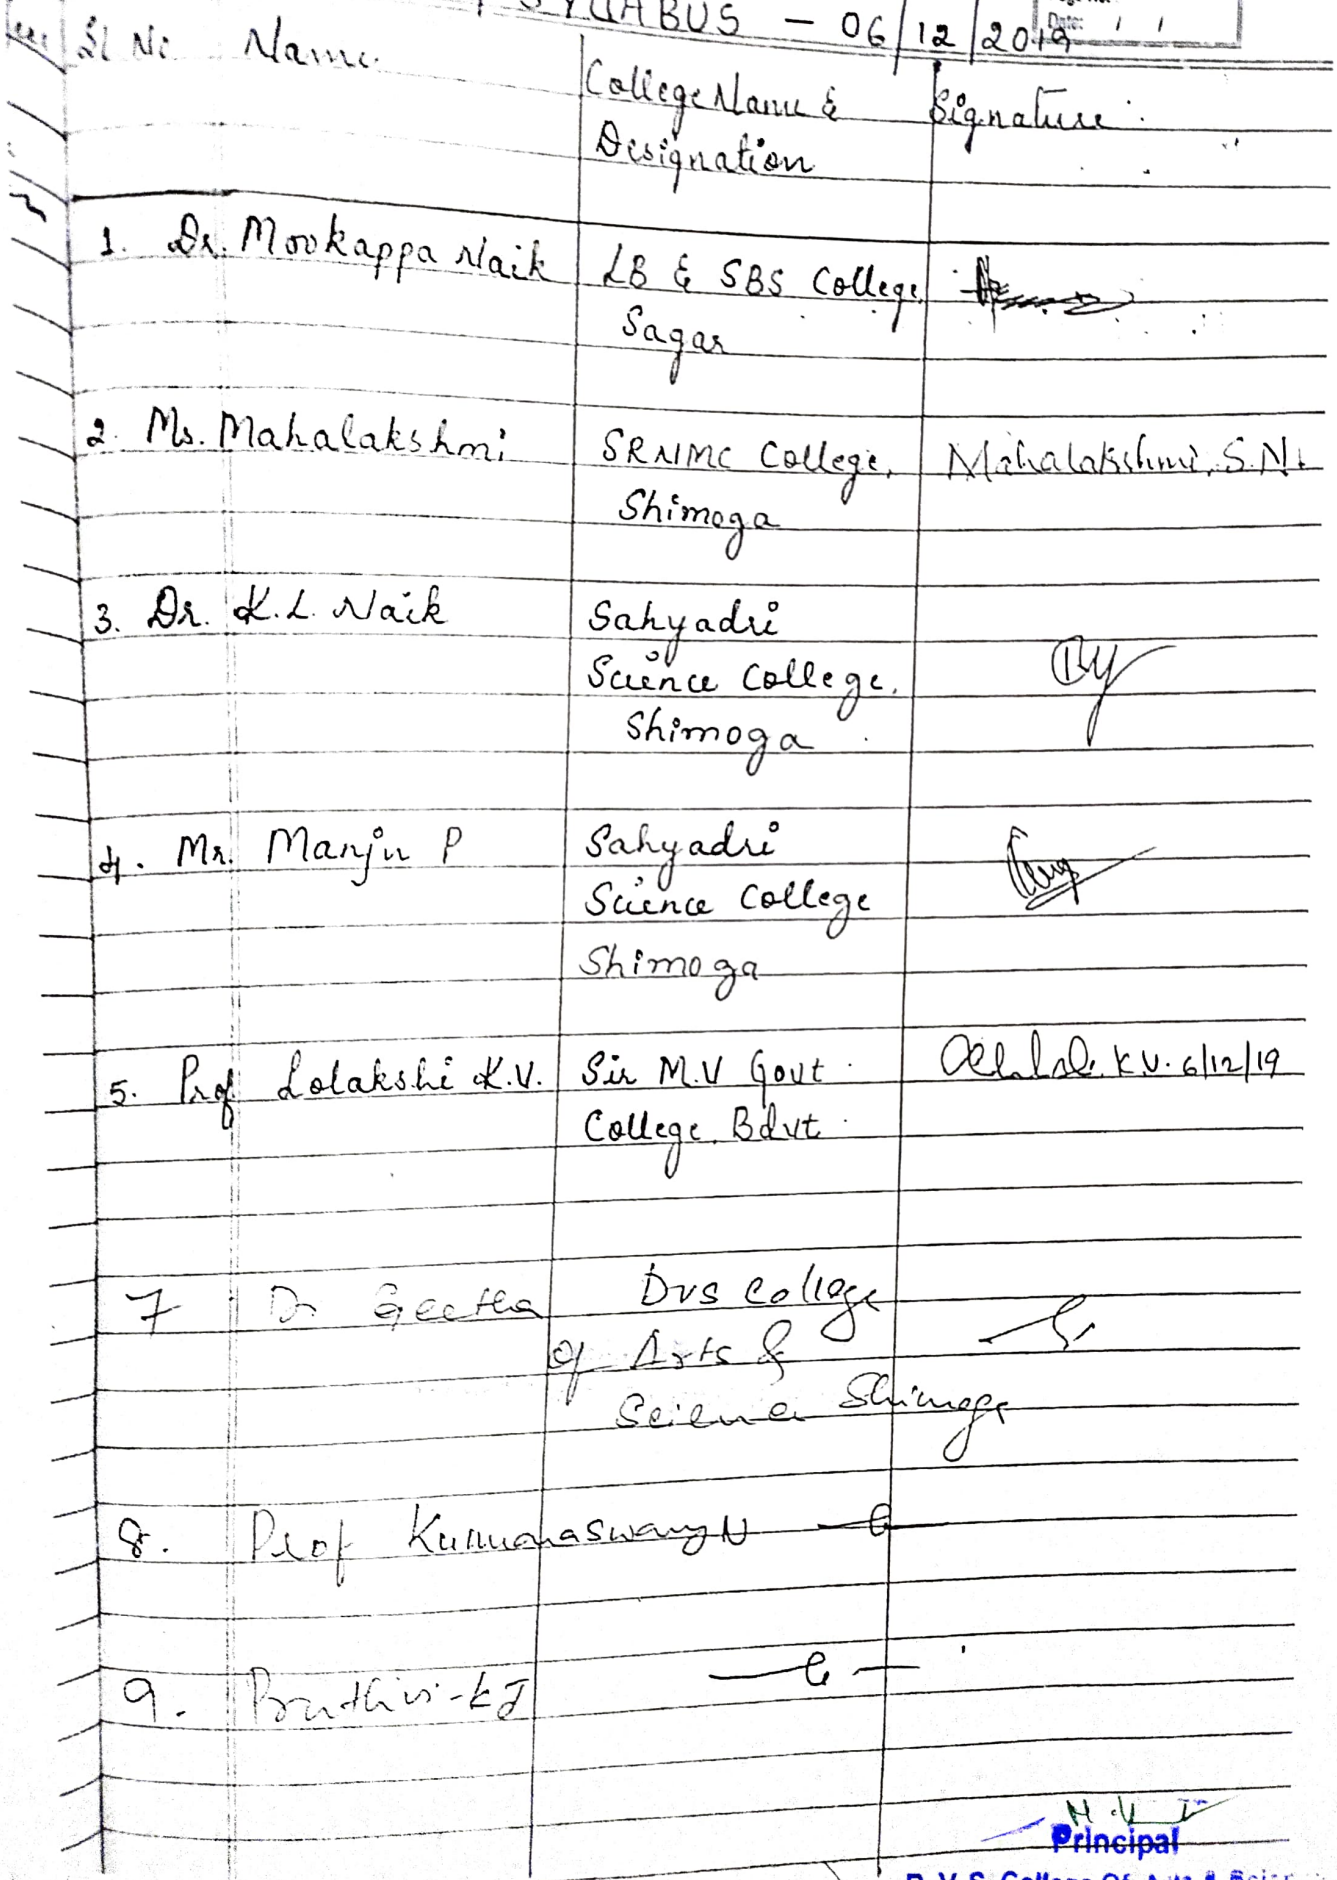 SYLLABUS - 06/12/2019
Date: / /
Sl No Name
College Name &
Designation
Signature
1. Dr. Mookappa Naik LB & SBS College,
Sagar
2. Ms. Mahalakshmi SRNMC College, Mahalakshmi, S.N.
Shimoga
3. Dr. K.L. Naik Sahyadri
Science College,
Shimoga
4. Mr. Manju P Sahyadri
Science College
Shimoga
5. Prof Lolakshi K.V. Sir M.V Govt. K.V. 6/12/19
College, Bdvt.
7 Dr Geetha Dvs College
of Arts &
Science Shimoga
8. Prof Kumaraswamy N
9. Pruthivi-K J
Principal
D. V. S. College Of Arts &